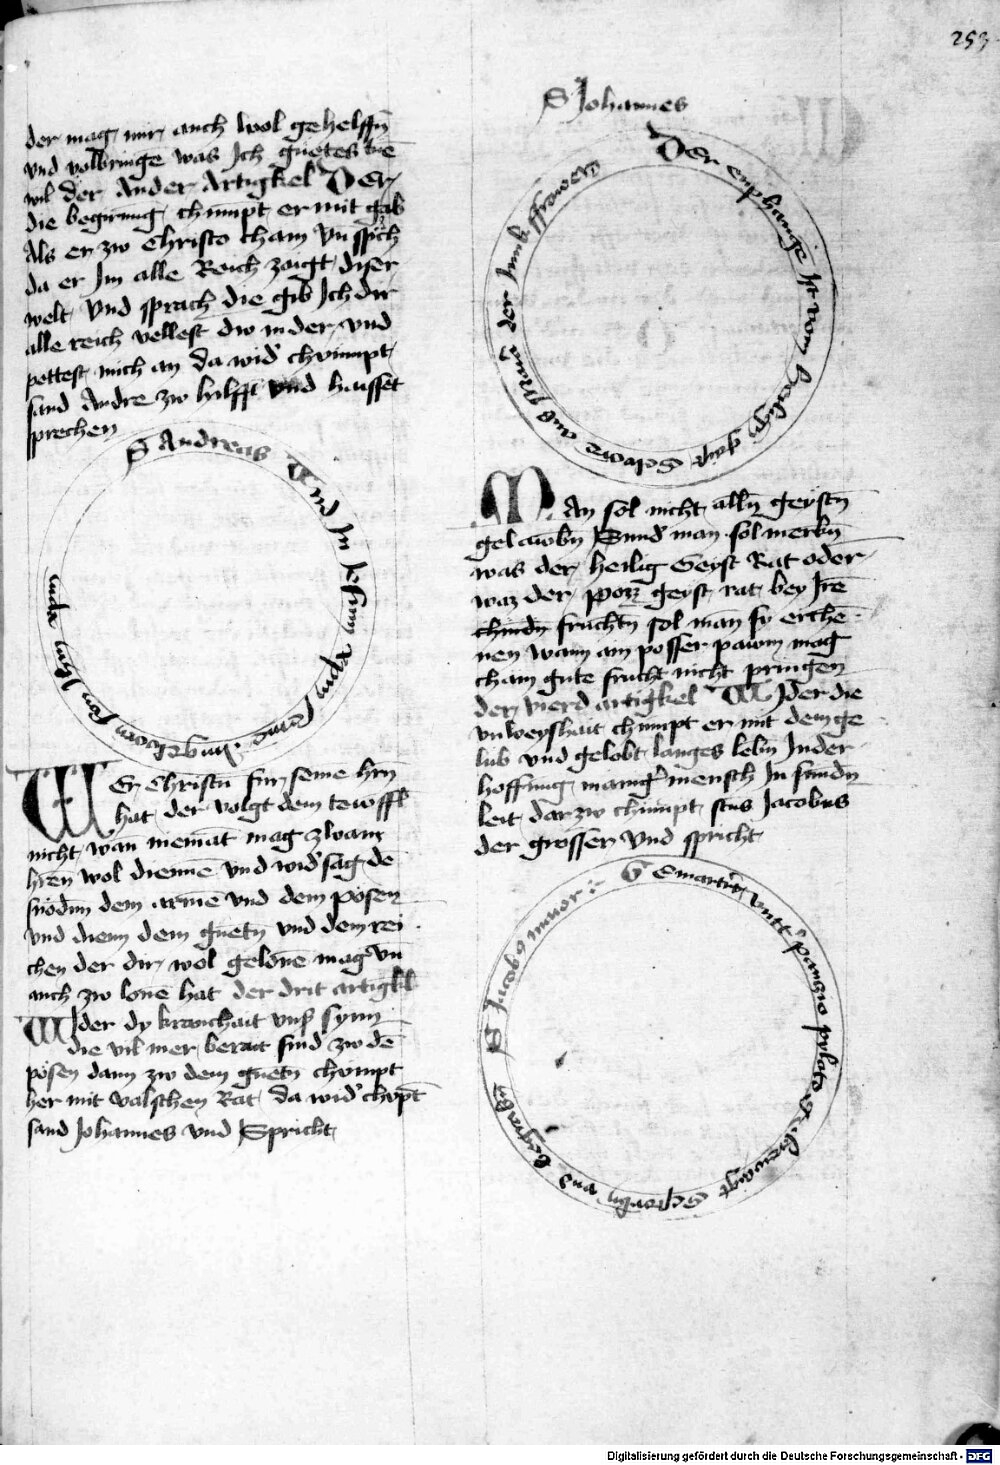 253
der mag mir auch wol gehelffn̄
vnd volbringē was Ich guetes tuē
wil der Ander Artigkel Der
die begirung chumpt er mit gab
Als er zw Christo cham vn̄ spͥch
da er Im alle Reich zaigt diser
welt Vnd sprach die gib Ich dir
alle reich vellest dw nider vnd
pettest mich an da wid' chvmpt
sand Andre zw hilfft vnd haisset
sprechen
S Andreas Vnd In Jesum xpm seinē aingeboren sun vnsn
W Er Christū fur seinē hrn̄
hat der volgt dem tewffl
nicht wan niemāt mag zwain
hrēn wol diennē vnd wid'sag dē
snodm dem armē vnd dem posen
vnd dienn dem guetn̄ vnd dem rei
chen der dir wol gelonē mag vn̄
auch zw lonē hat der drit artigkl
WIder dy kranchait vnsͬ synn
die vil mer berait sind zw dē
pōsen dann zw dem guetn chvmpt
her mit valschen Rat da wid' chvpt
sand Johannes vnd Spricht
S Johannes
Der enphange ist vom heilign̄ gaist geborē aus Maria der Junkffrowen
MAn sol nicht alln̄ geystn̄
gelawbn̄ Sund' man sol merkn̄
was der heilig Geyst Rat oder
waz der posz geyst rat bey Irē
chindn fruchtn̄ sol man sy erchē
nen wann ain posser pawm mag
cham gute frucht nicht pringen
der vierd artigkel WIder die
vnweyshait chumpt er mit dem ge
lub vnd gelobt langes lebn̄ In der
hoffnūg manig' mensch In sundn̄
leit dar zw chumpt stūs Jacobus
der grosser vnd spricht
S Jacobꝰ minor : Gemartert vntt' pancio pylato gekrewczigt gestorbn̄ vnd begrabn̄
Digitalisierung gefördert durch die Deutsche Forschungsgemeinschaft - DFG